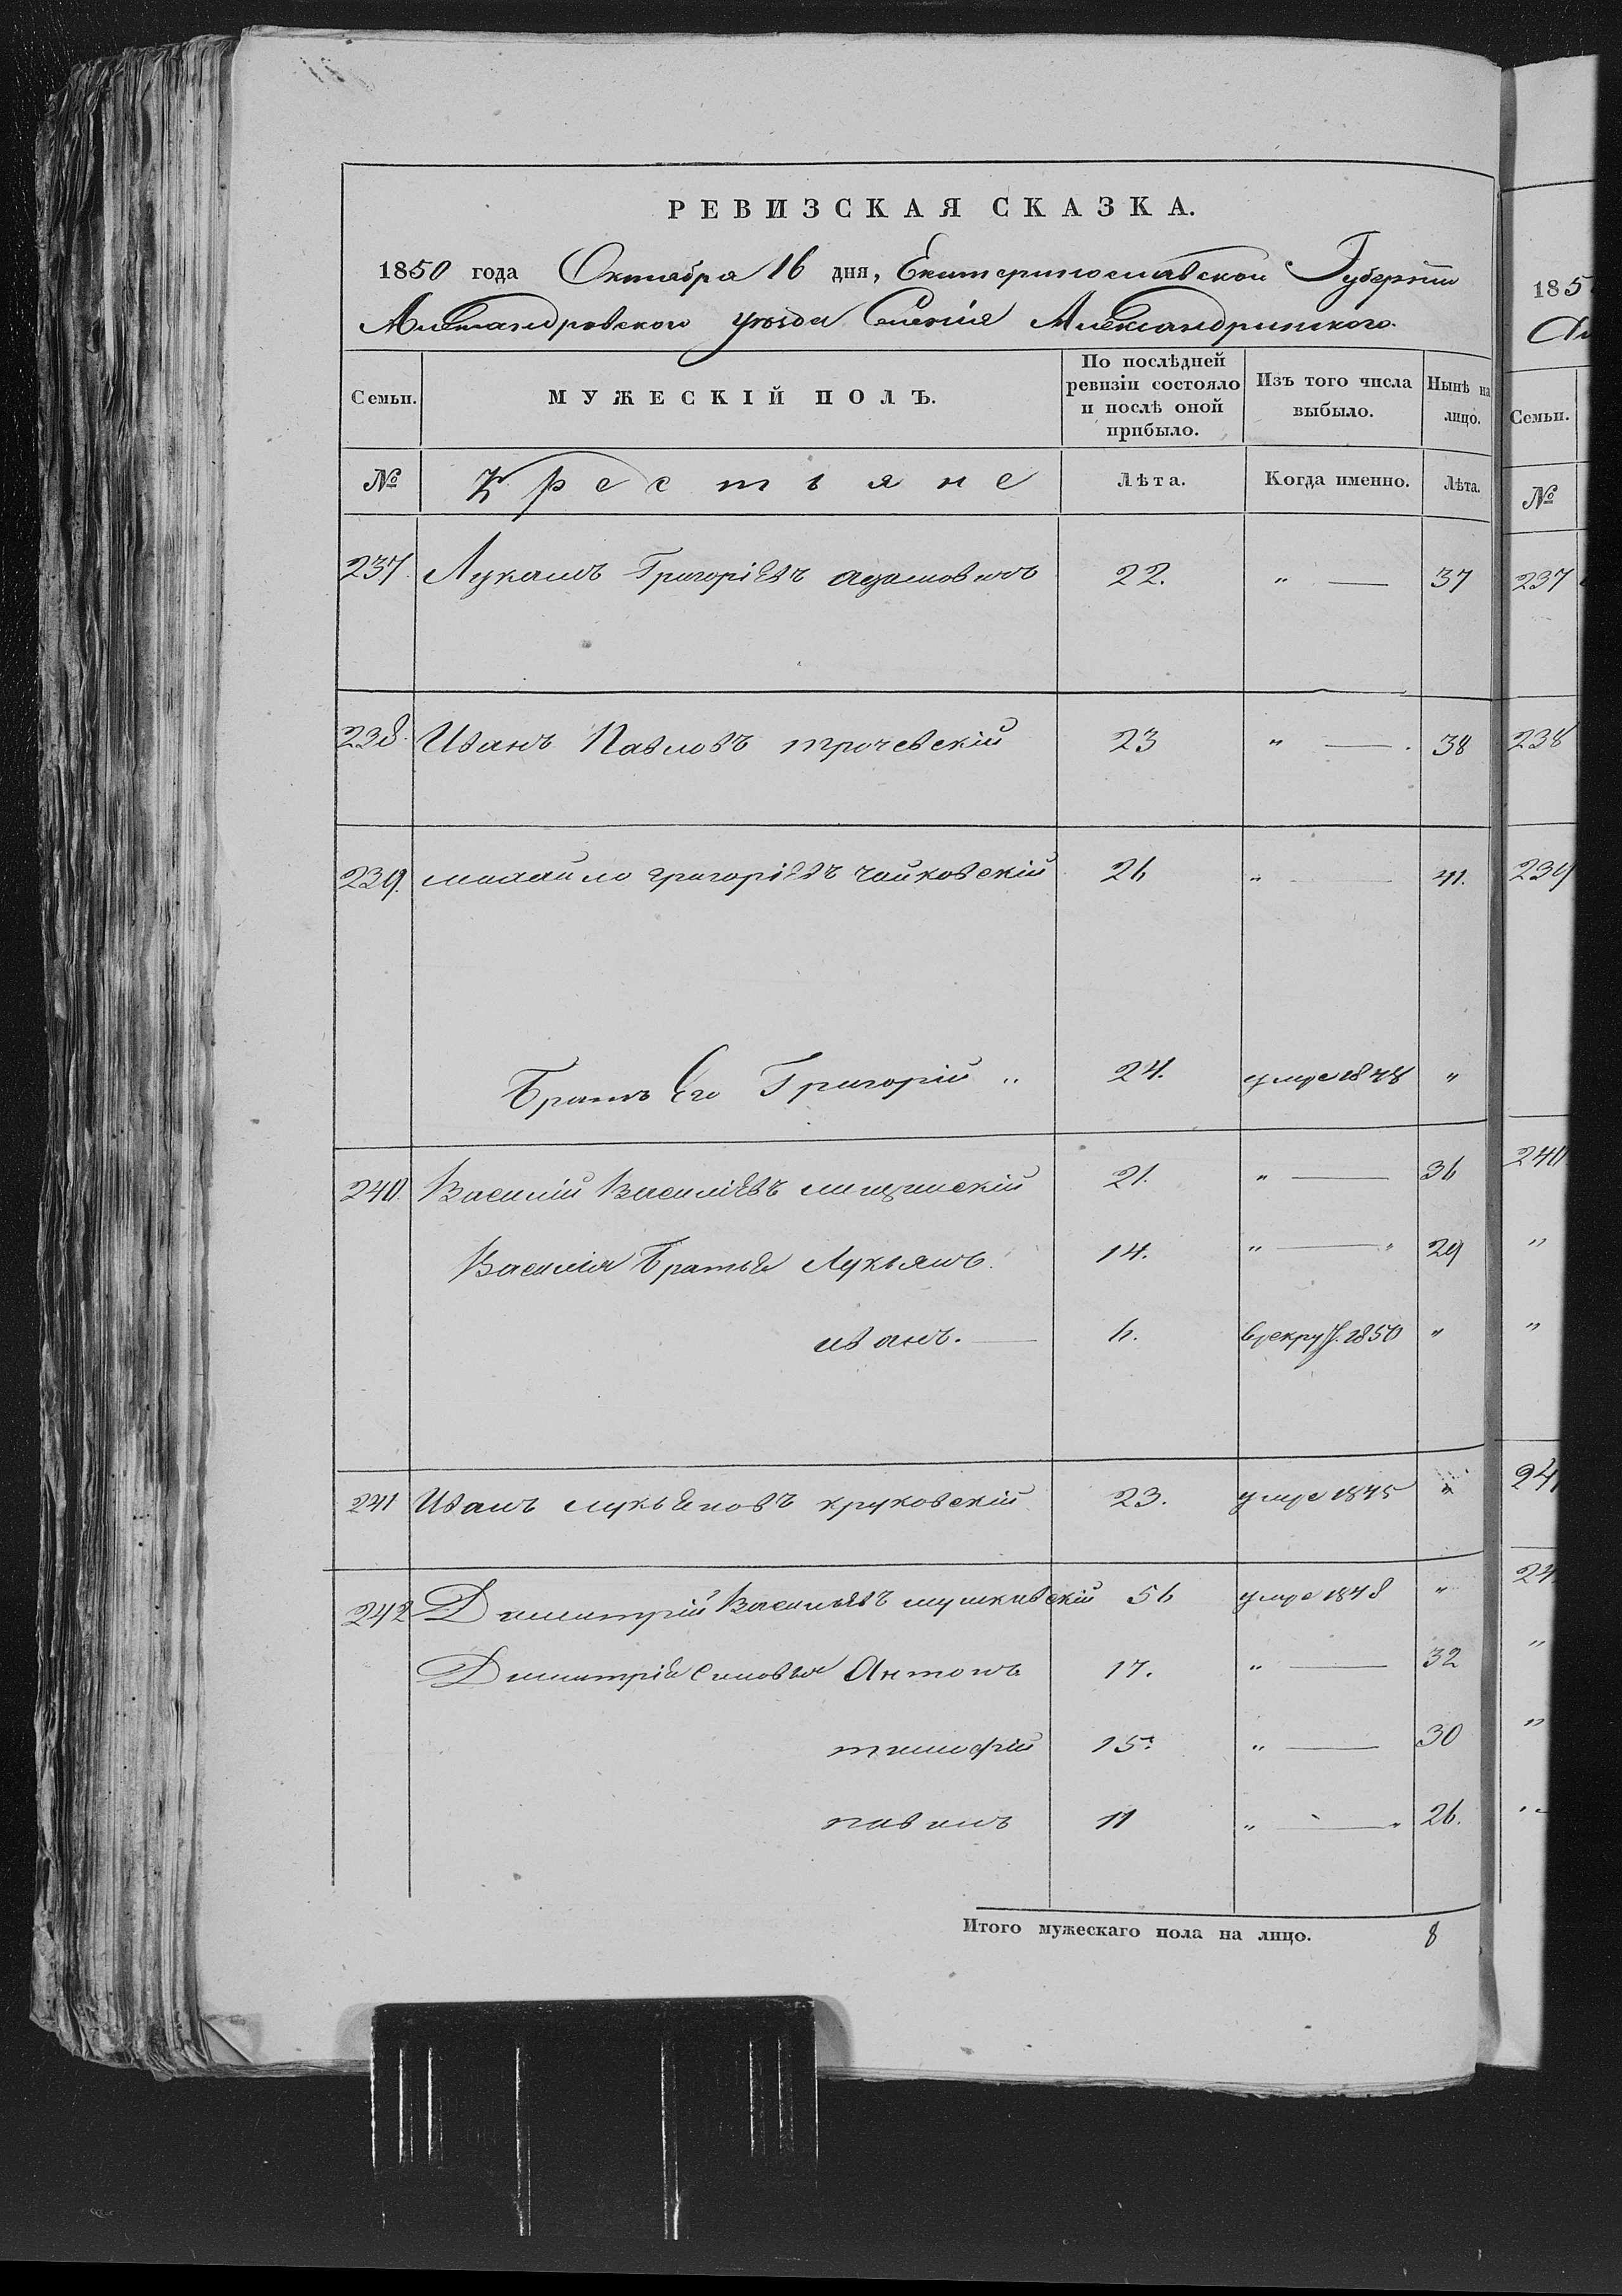 РЕВИЗСКАЯ СКАЗКА.
1850 года Октября 16 дня, Екатеринославской Губерніи
Александровского уѣзда Селенія Александринского.
Семьи. МУЖЕСКІЙ ПОЛЪ. По послѣдней ревизіи состояло и послѣ оной прибыло. Изъ того числа выбыло. Нынѣ на лицо.
№ Крестьяне Лѣта. Когда именно. Лѣта.
237 Лукашъ Григоріевъ адамовичъ 22. " — 37
238. Иванъ Павловъ трочевскій 23 " — . 38
239. михайло григоріевъ чайковскій 26 " — 41.
Братъ Его Григорій " 24. умре 1848 "
240. Василій Василіевъ лищинскій 21. " — 36
Василія Братья Лукьянъ. 14. " — " 29
иванъ. — 4. в рекру. 1850 "
241 Иванъ лукьяновъ круковскій 23. умре 1845 "
242 Димитрій Васильевъ мушкивскій 56 умре 1848 "
Димитрія Сыновья Антонъ 17. " — 32
тимофій 15. " — 30
павелъ 11 " — " 26.
Итого мужескаго пола на лицо. 8
185
Семьи.
№
237
238
239
240
"
"
24
24
"
"
"